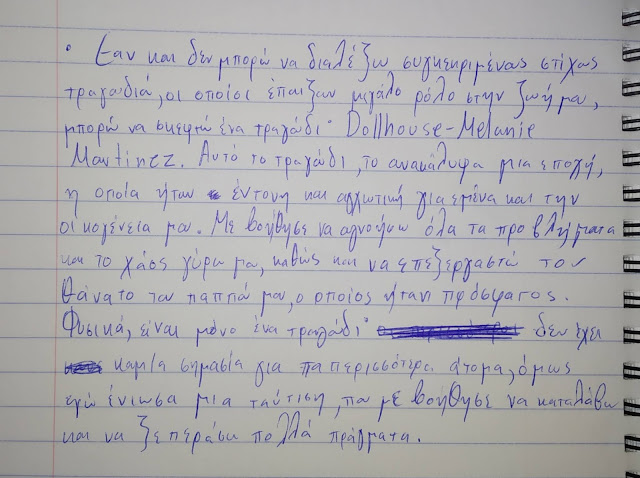 · Εαν και δεν μπορώ να διαλέξω συγκεκριμένους στίχους
τραγουδιά, οι οποίοι έπαιξαν μεγάλο ρόλο στην ζωή μου,
μπορώ να σκεφτώ ένα τραγούδι· Dollhouse-Melanie
Martinez. Αυτό το τραγούδι, το ανακάλυψα μια εποχή,
η οποία ήταν έντονη και αγχωτική για εμένα και την
οικογένεια μου. Με βοήθησε να αγνοήσω όλα τα προβλήματα
και το χάος γύρω μου, καθώς και να επεξεργαστώ τον
θάνατο του παππού μου, ο οποίος ήταν πρόσφατος.
Φυσικά, είναι μόνο ένα τραγούδι· δεν έχει
καμία σημασία για τα περισσότερα άτομα, όμως
εγώ ένιωσα μια ταύτιση, που με βοήθησε να καταλάβω
και να ξεπεράσω πολλά πράγματα.